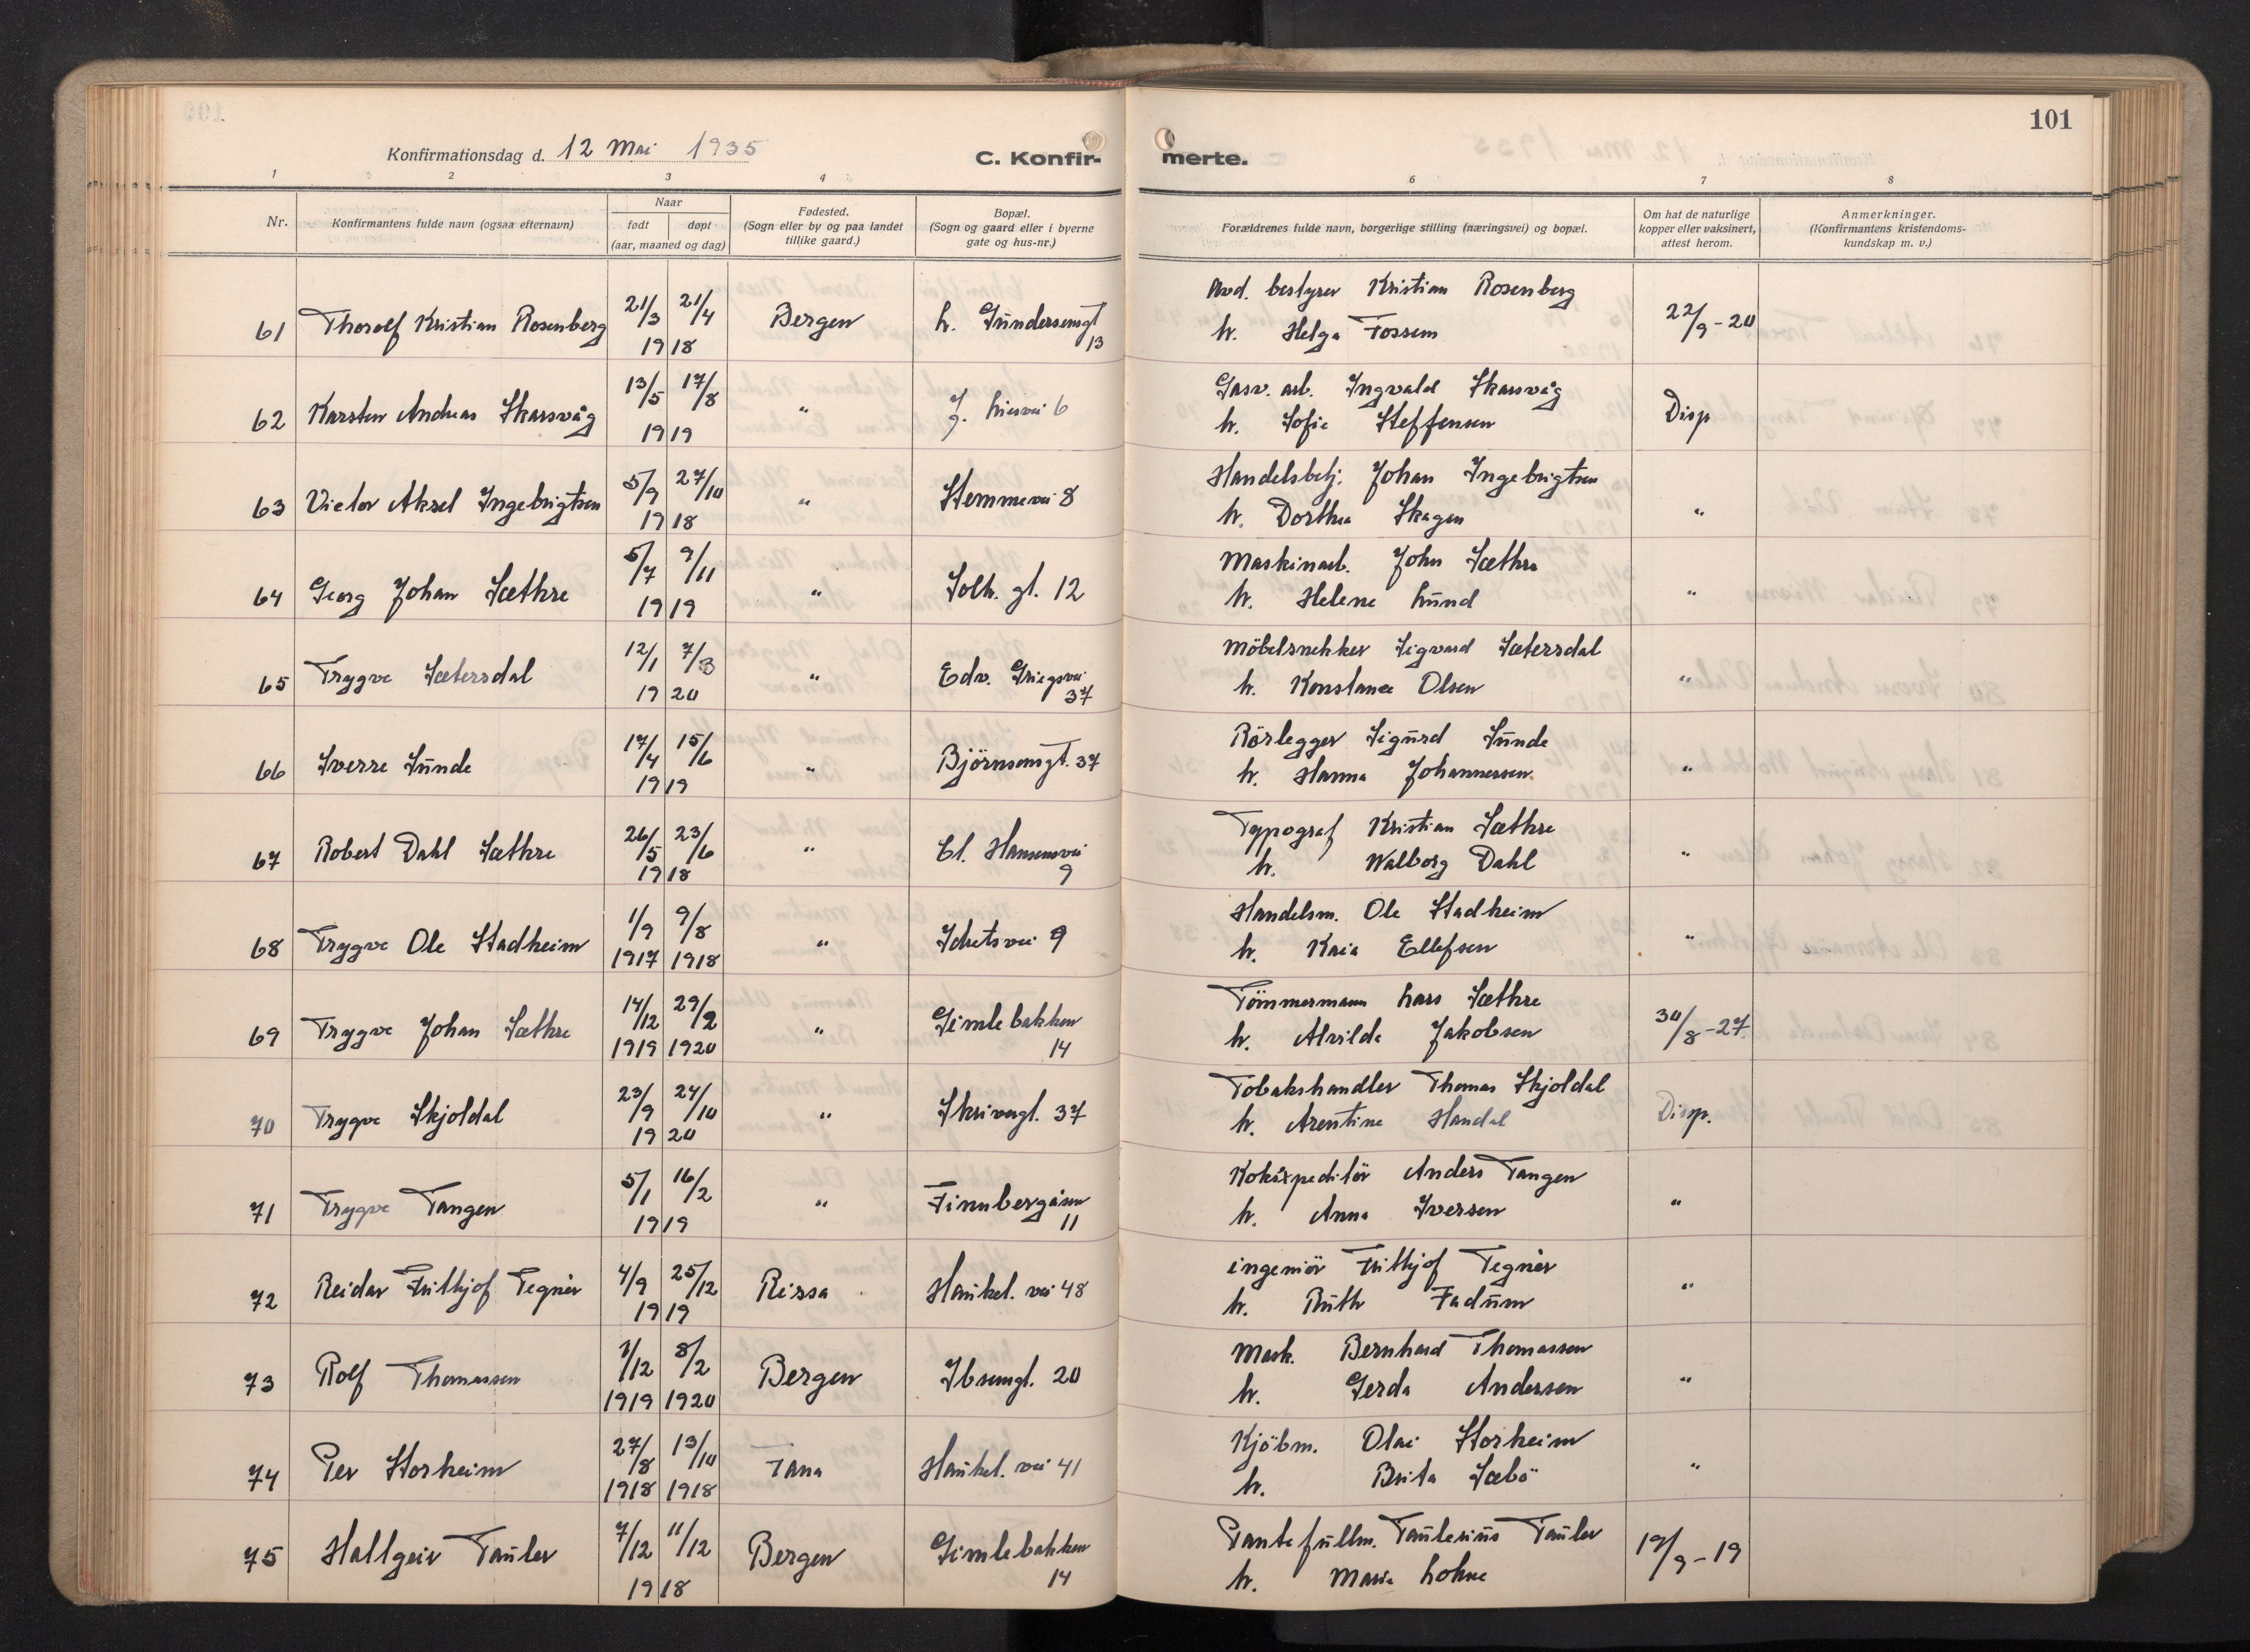 101
Konfirmationsdag d. 12 Mai 1935
C. Konfir- merte.
1 2 3 4 6 7 8
Nr.
Konfirmantens fulde navn (ogsaa efternavn)
Naar
født døpt
(aar, maaned og dag)
Fødested.
(Sogn eller by og paa landet
tillike gaard.)
Bopæl.
(Sogn og gaard eller i byerne
gate og hus-nr.)
Forældrenes fulde navn, borgerlige stilling (næringsvei) og bopæl.
Om hat de naturlige
kopper eller vaksinert,
attest herom.
Anmerkninger.
(Konfirmantens kristendoms-
kundskap m. v.)
21/3 21/4 Avd. bestyrer Kristian Rosenberg
61 Thorolf Kristian Rosenberg Bergen L. Gundersensgt h. Helga Fossem 22/9-20
1918 13
13/5 17/8 Gasv. arb. Ingvald Skarsvåg
62 Karsten Andreas Skarsvåg " J. Liesvei 6 h. Sofie Steffensen Disp
1919
5/9 27/10 Handelsbetj. Johan Ingebrigtsen
63 Victor Aksel Ingebrigtsen " Stemmevei 8 h. Dorthea Skagen "
1918
5/7 9/11 Maskinarb. John Sæthre
64 Georg Johan Sæthre " Solh. gt. 12 h. Helene Lund "
1919
12/1 7/3 Möbelsnekker Sigvard Sætersdal
65 Trygve Sætersdal " Edv. Griegsvei h. Konstance Olsen "
1920 37
17/4 15/6 Rörlegger Sigurd Sunde
66 Sverre Sunde " Björnsonsgt. 37 h. Hanna Johannessen "
1919
26/5 23/6 Typograf Kristian Sæthre
67 Robert Dahl Sæthre " Cl. Hansensvei h. Walborg Dahl "
1918 9
1/9 9/8 Handelsm. Ole Stadheim
68 Trygve Ole Stadheim " Idretsvei 9 h. Kaia Ellefsen "
1917 1918
14/12 29/2 Tömmermann Lars Sæthre
69 Trygve Johan Sæthre " Gimlebakken h. Alvilde Jakobsen 30/8-27
1919 1920 14
23/9 24/10 Tobakshandler Thomas Skjoldal
70 Trygve Skjoldal " Skivergt. 37 h. Arentine Handal Disp.
1920
5/1 16/2 Anders Tangen
71 Trygve Tangen " Finnbergåsen h. Anna Iversen "
1919 11
4/9 25/12 ingeniör Frithjof Tegnér
72 Reidar Frithjof Tegnér Rissa Haukel. vei 48 h. Ruth Fadum "
1919
1/12 8/2 Mask. Bernhard Thomassen
73 Rolf Thomassen Bergen Ibsensgt. 20 h. Gerda Andersen "
1919 1920
27/8 13/10 Kjöbm. Olai Storheim
74 Per Storheim Fana Haukel. vei 41 h. Brita Sæbö "
1918 1918
7/12 11/12 Pantefullm. Taulerius Tauler
75 Hallgeir Tauler Bergen Gimlebakken h. Marie Lohne 19/9-19
1918 14